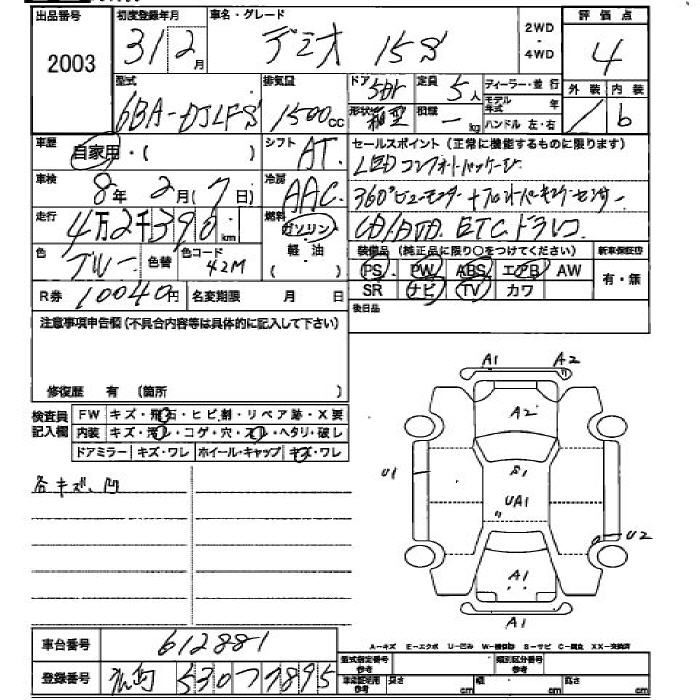 出品番号 初度登録年月 車名・グレード 2WD・4WD 評価点
2003 31 2月 デミオ 15S 4
型式 排気量 ドア 定員 ディーラー・並行 外装 内装
6BA-DJLFS 1500cc 5Dr 5人 モデル年式 年
形状 箱型 積載 ー kg ハンドル 左・右 b
車歴 自家用・( ) シフト AT セールスポイント(正常に機能するものに限ります)
LEDコンフォートパッケージ
車検 8年 2月( 7日) 冷房 AAC
360°ビューモニター+フロントパーキングセンサー
走行 4万2千390km 燃料 ガソリン
CD/DVD. ETC. ドラレコ
軽・油
( )
色 ブルー 色替 色コード 42M
装備品(純正品に限り○をつけてください) 新車保証書
PS PW ABS エアB AW 有・無
R券 10040円 名変期限 月 日
SR ナビ TV カワ
後日品
注意事項申告欄(不具合内容等は具体的に記入して下さい)
修復歴 有 (箇所 )
検査員記入欄 FW キズ・飛石・ヒビ・割・リペア跡・X要
内装 キズ・汚レ・コゲ・穴・スレ・ヘタリ・破レ
ドアミラー キズ・ワレ ホイール・キャップ キズ・ワレ
各キズ、凹
A1 A2
A2
U1
UA1
U2
A1
A1
車台番号 612881
登録番号 530 7 3895
A-キズ E-エクボ U-凹み W-補修跡 S-サビ C-腐食 XX-交換済
型式指定番号 参考 類別区分番号 参考
車庫証明用 参考 長さ cm 幅 cm 高さ cm